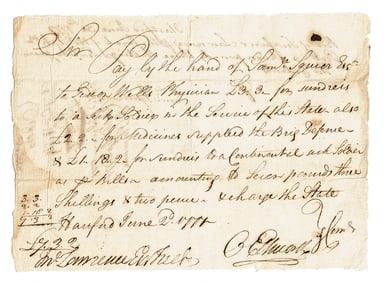 Sir
Pay by the hand of Sam.ll Squier Esq.r
to Physician £3.3 for sundries
to a Sick Soldier in the Service of this State also
£2.2 for Medicines supplied the Brig Defence
& £1.18.2 for sundries to a Continental sick Soldier
as p.r Bills amounting to Seven pounds three
Shillings & two pence & charge the State
3.3.
2.2
1.18.2
Hartford June 2.d
7.3.2
Jn.o Lawrence Esq.r